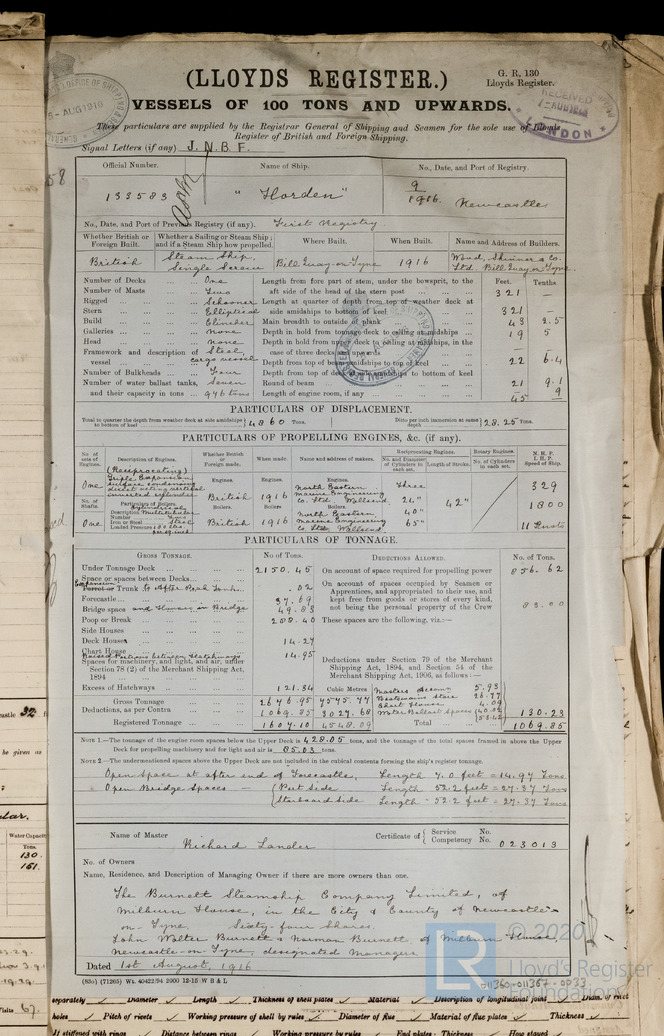 (LLOYDS REGISTER.)
G. R. 130
Lloyds Register.
VESSELS OF 100 TONS AND UPWARDS.
These particulars are supplied by the Registrar General of Shipping and Seamen for the sole use of Lloyds
Register of British and Foreign Shipping.
Signal Letters (if any) J.N.B.F.
RECEIVED
LONDON
Official Number. Name of Ship. No., Date, and Port of Registry.
133583 "Horden" 9/1916. Newcastle
No., Date, and Port of Previous Registry (if any). First Registry
Whether British or Foreign Built. Whether a Sailing or Steam Ship; and if a Steam Ship how propelled. Where Built. When Built. Name and Address of Builders.
British Steam Ship, Single Screw Bill Quay-on-Tyne 1916 Wood, Skinner & Co. Ltd. Bill Quay on Tyne
Number of Decks One Length from fore part of stem, under the bowsprit, to the Feet. Tenths.
Number of Masts Two aft side of the head of the stern post 321
Rigged Schooner Length at quarter of depth from top of weather deck at
Stern Elliptical side amidships to bottom of keel 321 —
Build Clincher Main breadth to outside of plank 43 2.5
Galleries None Depth in hold from tonnage deck to ceiling at midships 19 5
Head None Depth in hold from upper deck to ceiling at midships, in the
Framework and description of Steel, case of three decks and upwards
vessel cargo vessel Depth from top of beam amidships to top of keel 22 6.4
Number of Bulkheads Four Depth from top of deck at side amidships to bottom of keel
Number of water ballast tanks, Seven Round of beam 21 9.1
and their capacity in tons 946 tons Length of engine room, if any 45
PARTICULARS OF DISPLACEMENT.
Total to quarter the depth from weather deck at side amidships to bottom of keel 4860 Tons. Ditto per inch immersion at same depth 28.25 Tons.
PARTICULARS OF PROPELLING ENGINES, &c. (if any).
No. of sets of Engines. Description of Engines. Whether British or Foreign made. When made. Name and address of makers. Reciprocating Engines. Rotary Engines. N.H.P. I.H.P. Speed of Ship.
No. and Diameter of Cylinders in each set. Length of Stroke. No. of Cylinders in each set.
One (Reciprocating) Triple Expansion surface condensing direct acting vertical inverted cylinders Engines. British Engines. 1916 Engines. North Eastern Marine Engineering Co. Ltd Wallsend Three 42" 329
No. of Shafts. Particulars of Boilers. Boilers. Boilers. Boilers. 40" 1800
One Description Cylindrical Multitubular Iron or Steel Steel British 1916 North Eastern Marine Engineering Co. Ltd Wallsend 65" 11 Knots
PARTICULARS OF TONNAGE.
GROSS TONNAGE. No. of Tons. DEDUCTIONS ALLOWED. No. of Tons.
Under Tonnage Deck 2150.45 On account of space required for propelling power 856.62
Space or spaces between Decks
Expansion Trunk to After Peak Tank .02 On account of spaces occupied by Seamen or
Forecastle 37.69 Apprentices, and appropriated to their use, and
Bridge space and Houses in Bridge 49.83 kept free from goods or stores of every kind, not being the personal property of the Crew 83.00
Poop or Break 208.40 These spaces are the following, viz.:—
Side Houses
Deck Houses 14.27
Chart House
Raised Portions between Hatchways 14.95
Spaces for machinery, and light, and air, under Deductions under Section 79 of the Merchant
Section 78 (2) of the Merchant Shipping Act, Shipping Act, 1894, and Section 54 of the
1894 Merchant Shipping Act, 1906, as follows:—
Excess of Hatchways 121.34 Cubic Metres Masters Accom. 5.93
Gross Tonnage 2676.95 7575.77 Boatswains Store 26.77
Deductions, as per Contra 1069.85 3027.68 Chart House 4.09
Water Ballast Spaces 130.23
Registered Tonnage 1607.10 4548.09 Total 1069.85
NOTE 1.—The tonnage of the engine room spaces below the Upper Deck is 428.05 tons, and the tonnage of the total spaces framed in above the Upper
Deck for propelling machinery and for light and air is 85.03 tons.
NOTE 2.—The undermentioned spaces above the Upper Deck are not included in the cubical contents forming the ship's register tonnage.
Open Space at after end of Forecastle, Length 7.0 feet = 14.97 Tons
" Open Bridge Spaces — (Port Side Length 52.2 feet = 27.37 Tons
(Starboard Side Length 52.2 feet = 27.37 Tons
Name of Master Richard Lander Certificate of { Service No. Competency No. 023013
No. of Owners
Name, Residence, and Description of Managing Owner if there are more owners than one.
The Burnett Steamship Company Limited, of
Milburn House, in the City & County of Newcastle-
on-Tyne, Sixty-four Shares.
John Walter Burnett & Norman Burnett, of Milburn House,
Newcastle-on-Tyne, designated Managers.
Dated 1st August, 1916
(83o) (71265) Wt. 40422/94 2000 12-15 W B & L
011360-011367-0033
© 2020
LR
Lloyd's Register
Foundation
separately Diameter Length Thickness of shell plates Material Description of longitudinal joint Diam. of rivet
holes Pitch of rivets Working pressure of shell by rules Diameter of flue Material of flue plates Thickness
If stiffened with rings Distance between rings Working pressure by rules End plates: Thickness How stayed
Water Capacity
Tons
130.
151.